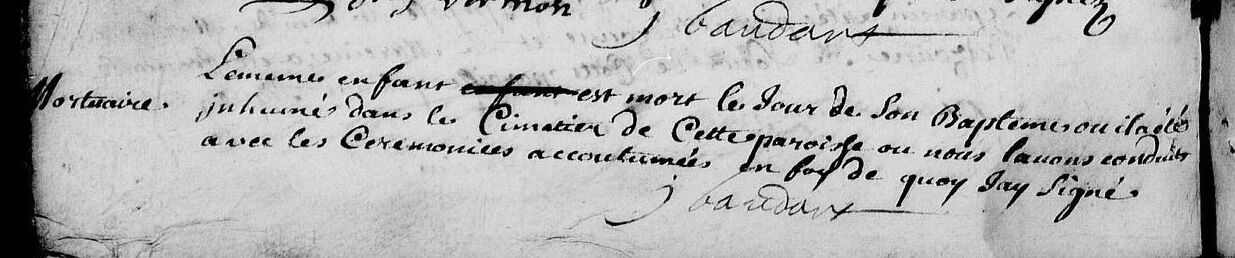 vermon signez
J baudart
Mortuaire. Lememe enfant enfant est mort le Jour de Son Baptemes ou il a été
jnhumés dans le Cimetier de Cette paroisse ou nous lavons conduits
avec les Ceremonies accoutumées en foy de quoy Jay Signé.
J baudart